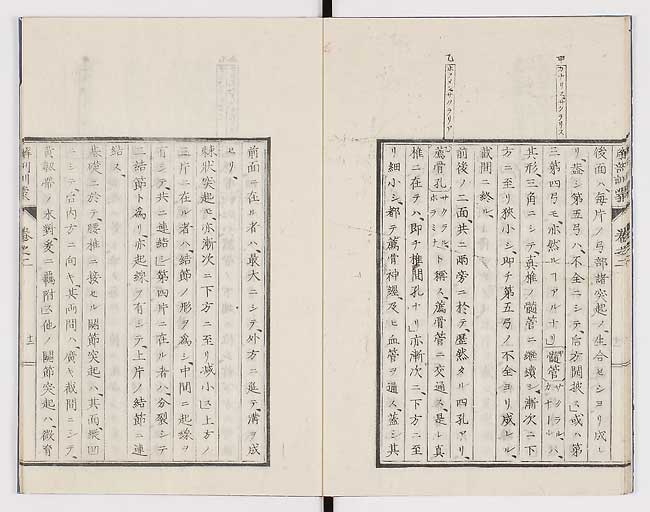 甲 カナリス、サクラリス
乙 ホラミナ、サクラリア
後面ハ、毎片ノ弓部諸突起ノ、生合セシヨリ成レ
リ、蓋シ第五弓ハ、不全ニシテ、后方開披ス、或ハ第
三第四弓モ、亦然ルヿアルナリ、髄管、サクラルハ、
其形、三角ニシテ、真椎ノ髄管ニ継続シ、漸次ニ下
方ニ至リ狭小シ、即チ第五弓ノ不全ヨリ成レル、
截間ニ終ル、
前後ノ二面、共ニ両旁ニ於テ、歴然タル四孔アリ、
薦骨孔ト称ス、薦骨管ニ交通ス、是レ真
椎ニ在テハ、即チ椎間孔ナリ、亦漸次ニ、下方ニ至
リ細小シ、都テ薦骨神経、及ヒ血管ヲ通ス、蓋シ其
解剖訓蒙 巻之二
前面ニ在ル者ハ、最大ニシテ、外方ニ延テ溝ヲ成
セリ、
棘状突起モ、亦漸次ニ下方ニ至リ減小ス、上方ノ
三片ニ在ル者ハ、結節ノ形ヲ為シ、中間ニ起線ヲ
有シテ、共ニ連結ス、第四片ニ在ル者ハ、分裂シテ
二結節ト為リ、亦起線ヲ有シテ、上片ノ結節ニ連
結ス、
基礎ニ於テ、腰椎ニ接セル関節突起ハ、其面、縦凹
ニシテ、后内方ニ向キ、其両間ハ、廣キ截間ニシテ、
黄靱帯ノ爰ニ羈附ス、他ノ関節突起ハ、微育
解剖訓蒙 巻之二 十二